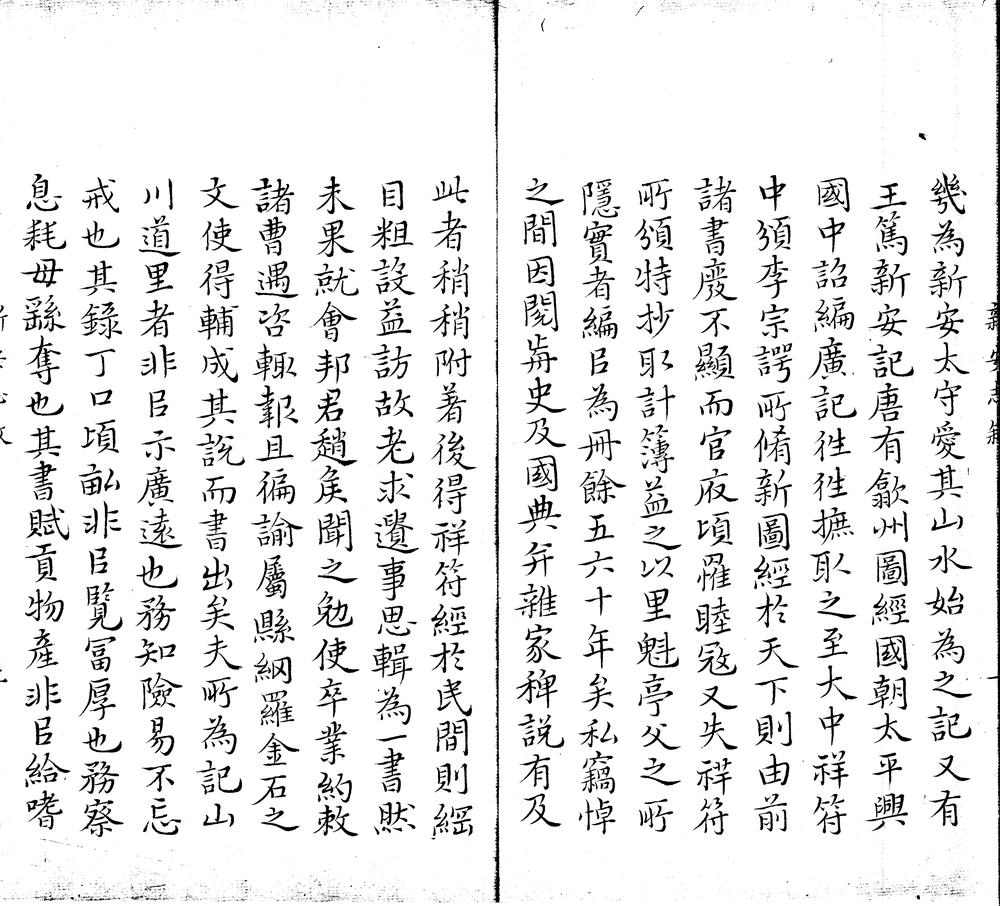 幾為新安太守愛其山水始為之記又有
王篤新安記唐有歙州圖經國朝太平興
國中詔編廣記徃徃摭取之至大中祥符
中頒李宗諤所脩新圖經於天下則由前
諸書廢不顯而官府頃罹睦㓂又失祥符
所頒特抄取計簿益之以里魁亭父之所
隱實者編㠯為冊餘五六十年矣私竊悼
之間因閱前史及國典并雜家稗説有及
此者稍稍附著後得祥符經於民間則綱
目粗設益訪故老求遺事思輯為一書然
未果就會邦君趙侯聞之勉使卒業約敕
諸曹遇咨輒報且徧諭屬縣網羅金石之
文使得輔成其説而書出矣夫所為記山
川道里者非㠯示廣遠也務知險易不忘
戒也其錄丁口頃畝非㠯覽富厚也務察
息耗毋繇奪也其書賦貢物產非㠯給嗜